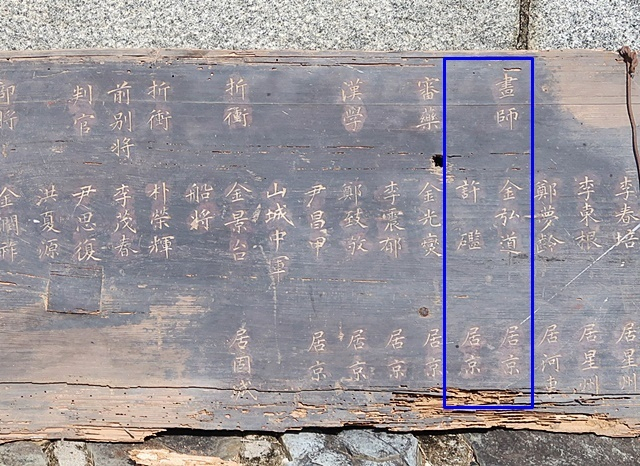 李春培 居星州
李東根 居星州
鄭夢齡 居河東
畫師 金弘道 居京
許礛 居京
審藥 金光燮 居京
李震郁 居京
漢学 鄭致敬 居京
尹昌甲 居京
山城中軍
折衝 金景台 居固城
船將
折衝 朴榮輝
前別將 李茂春
判官 尹思復
洪夏源
郎將